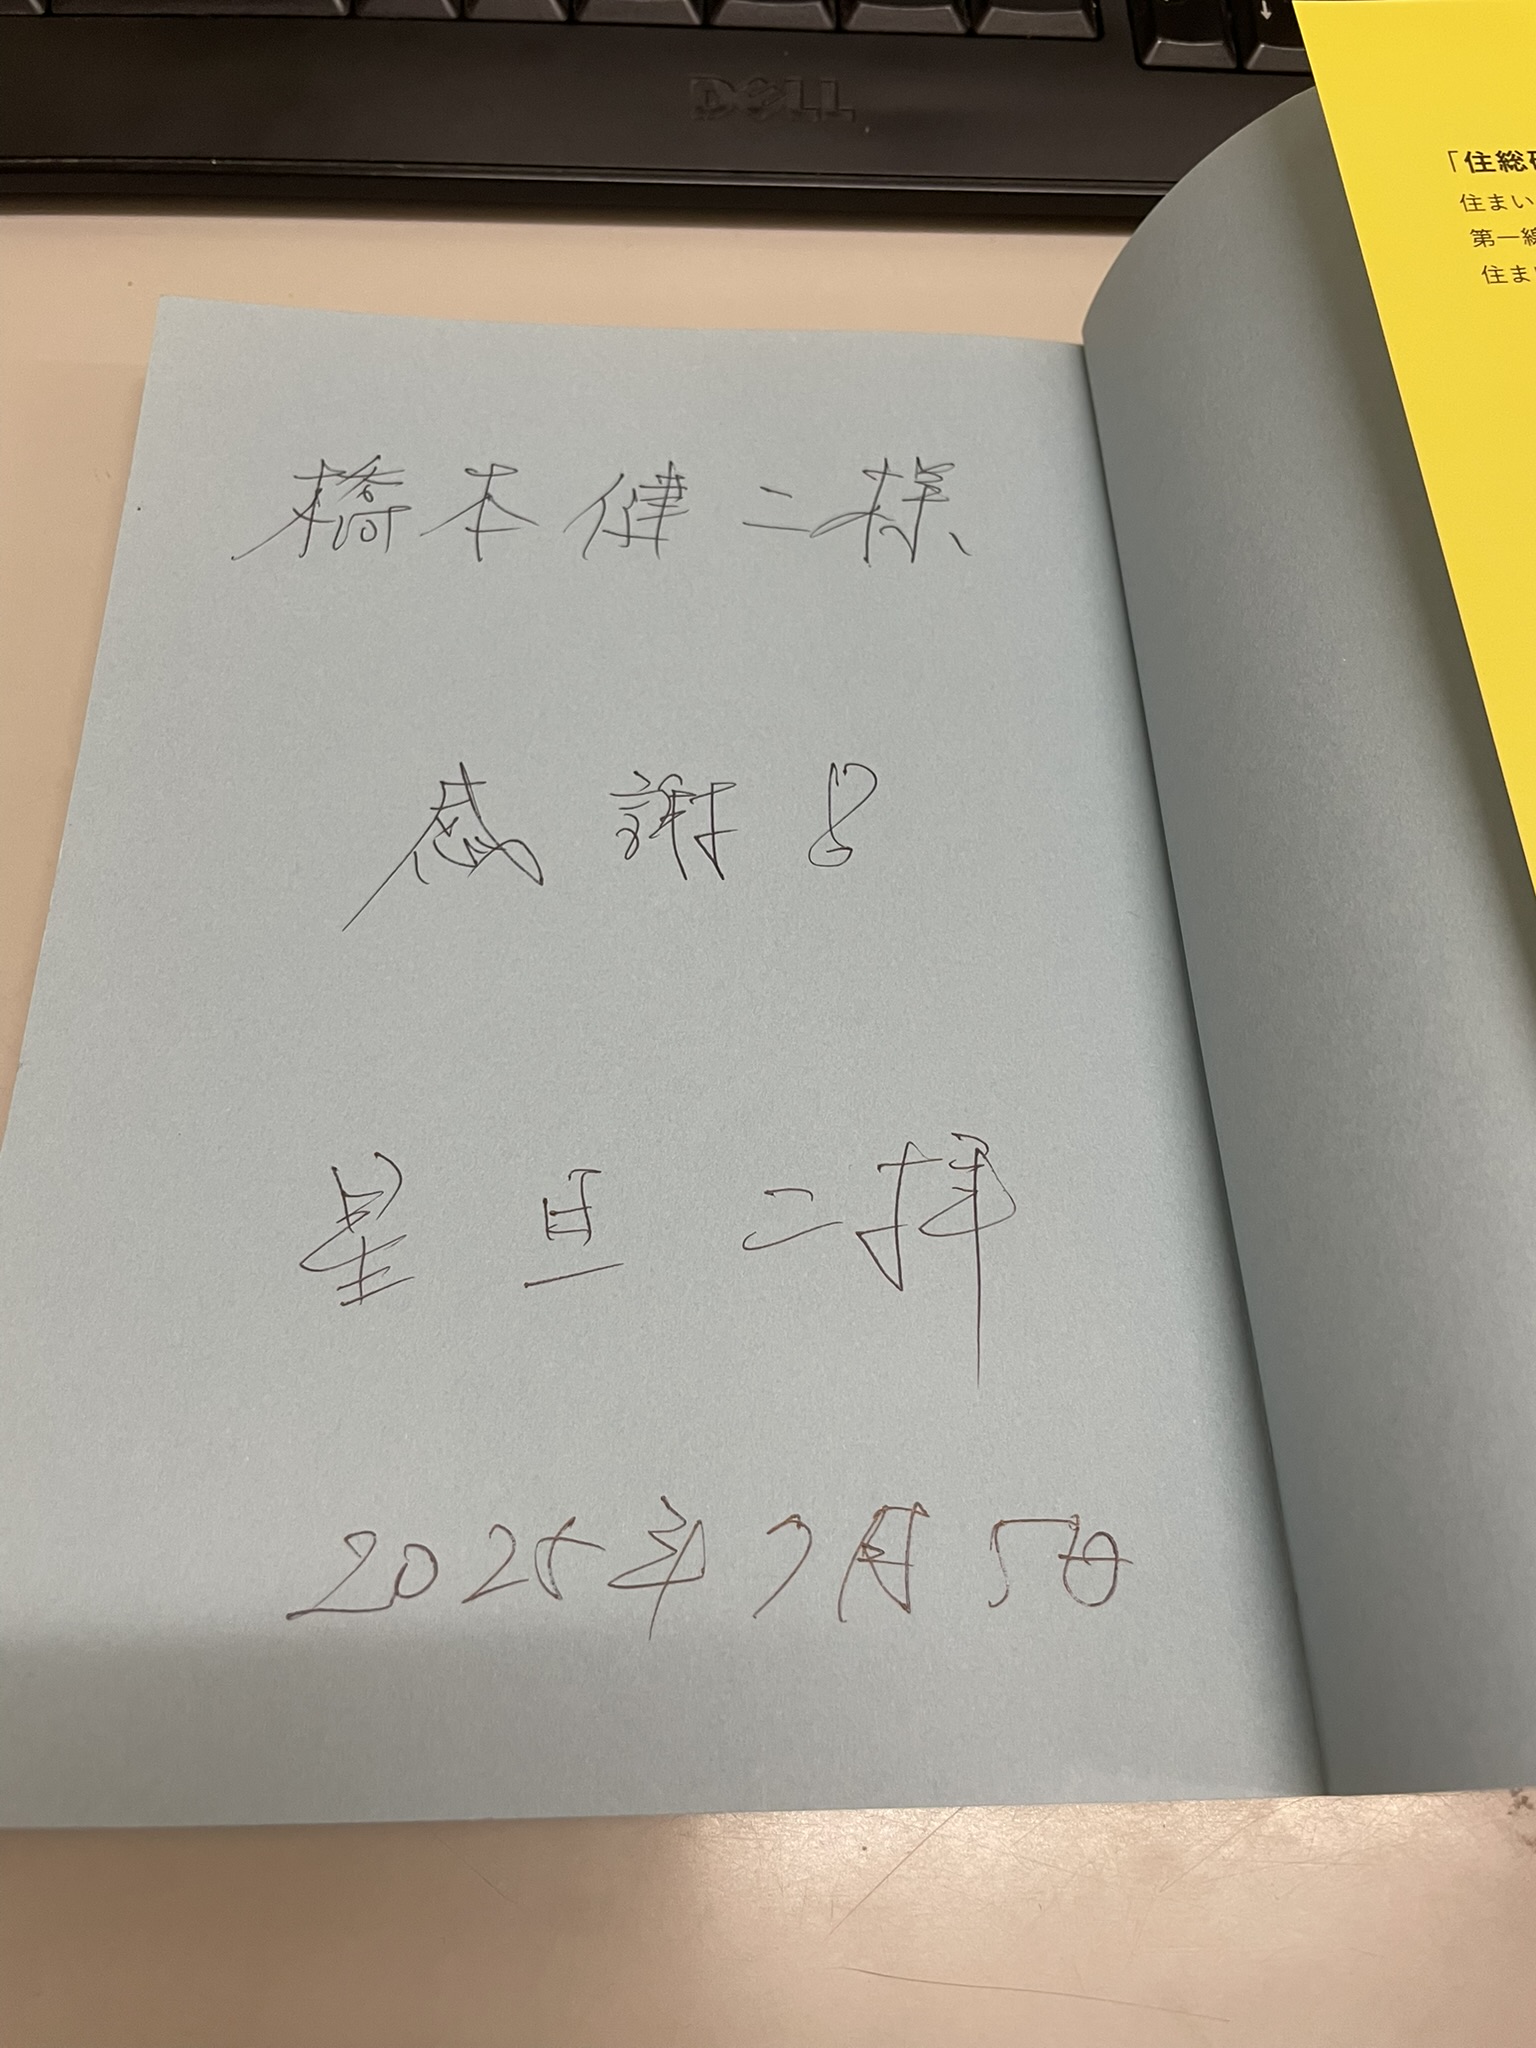 DELL
「住総
住まい
第一線
住まい
橋本健二様
感謝!
星旦二拝
2025年7月5日